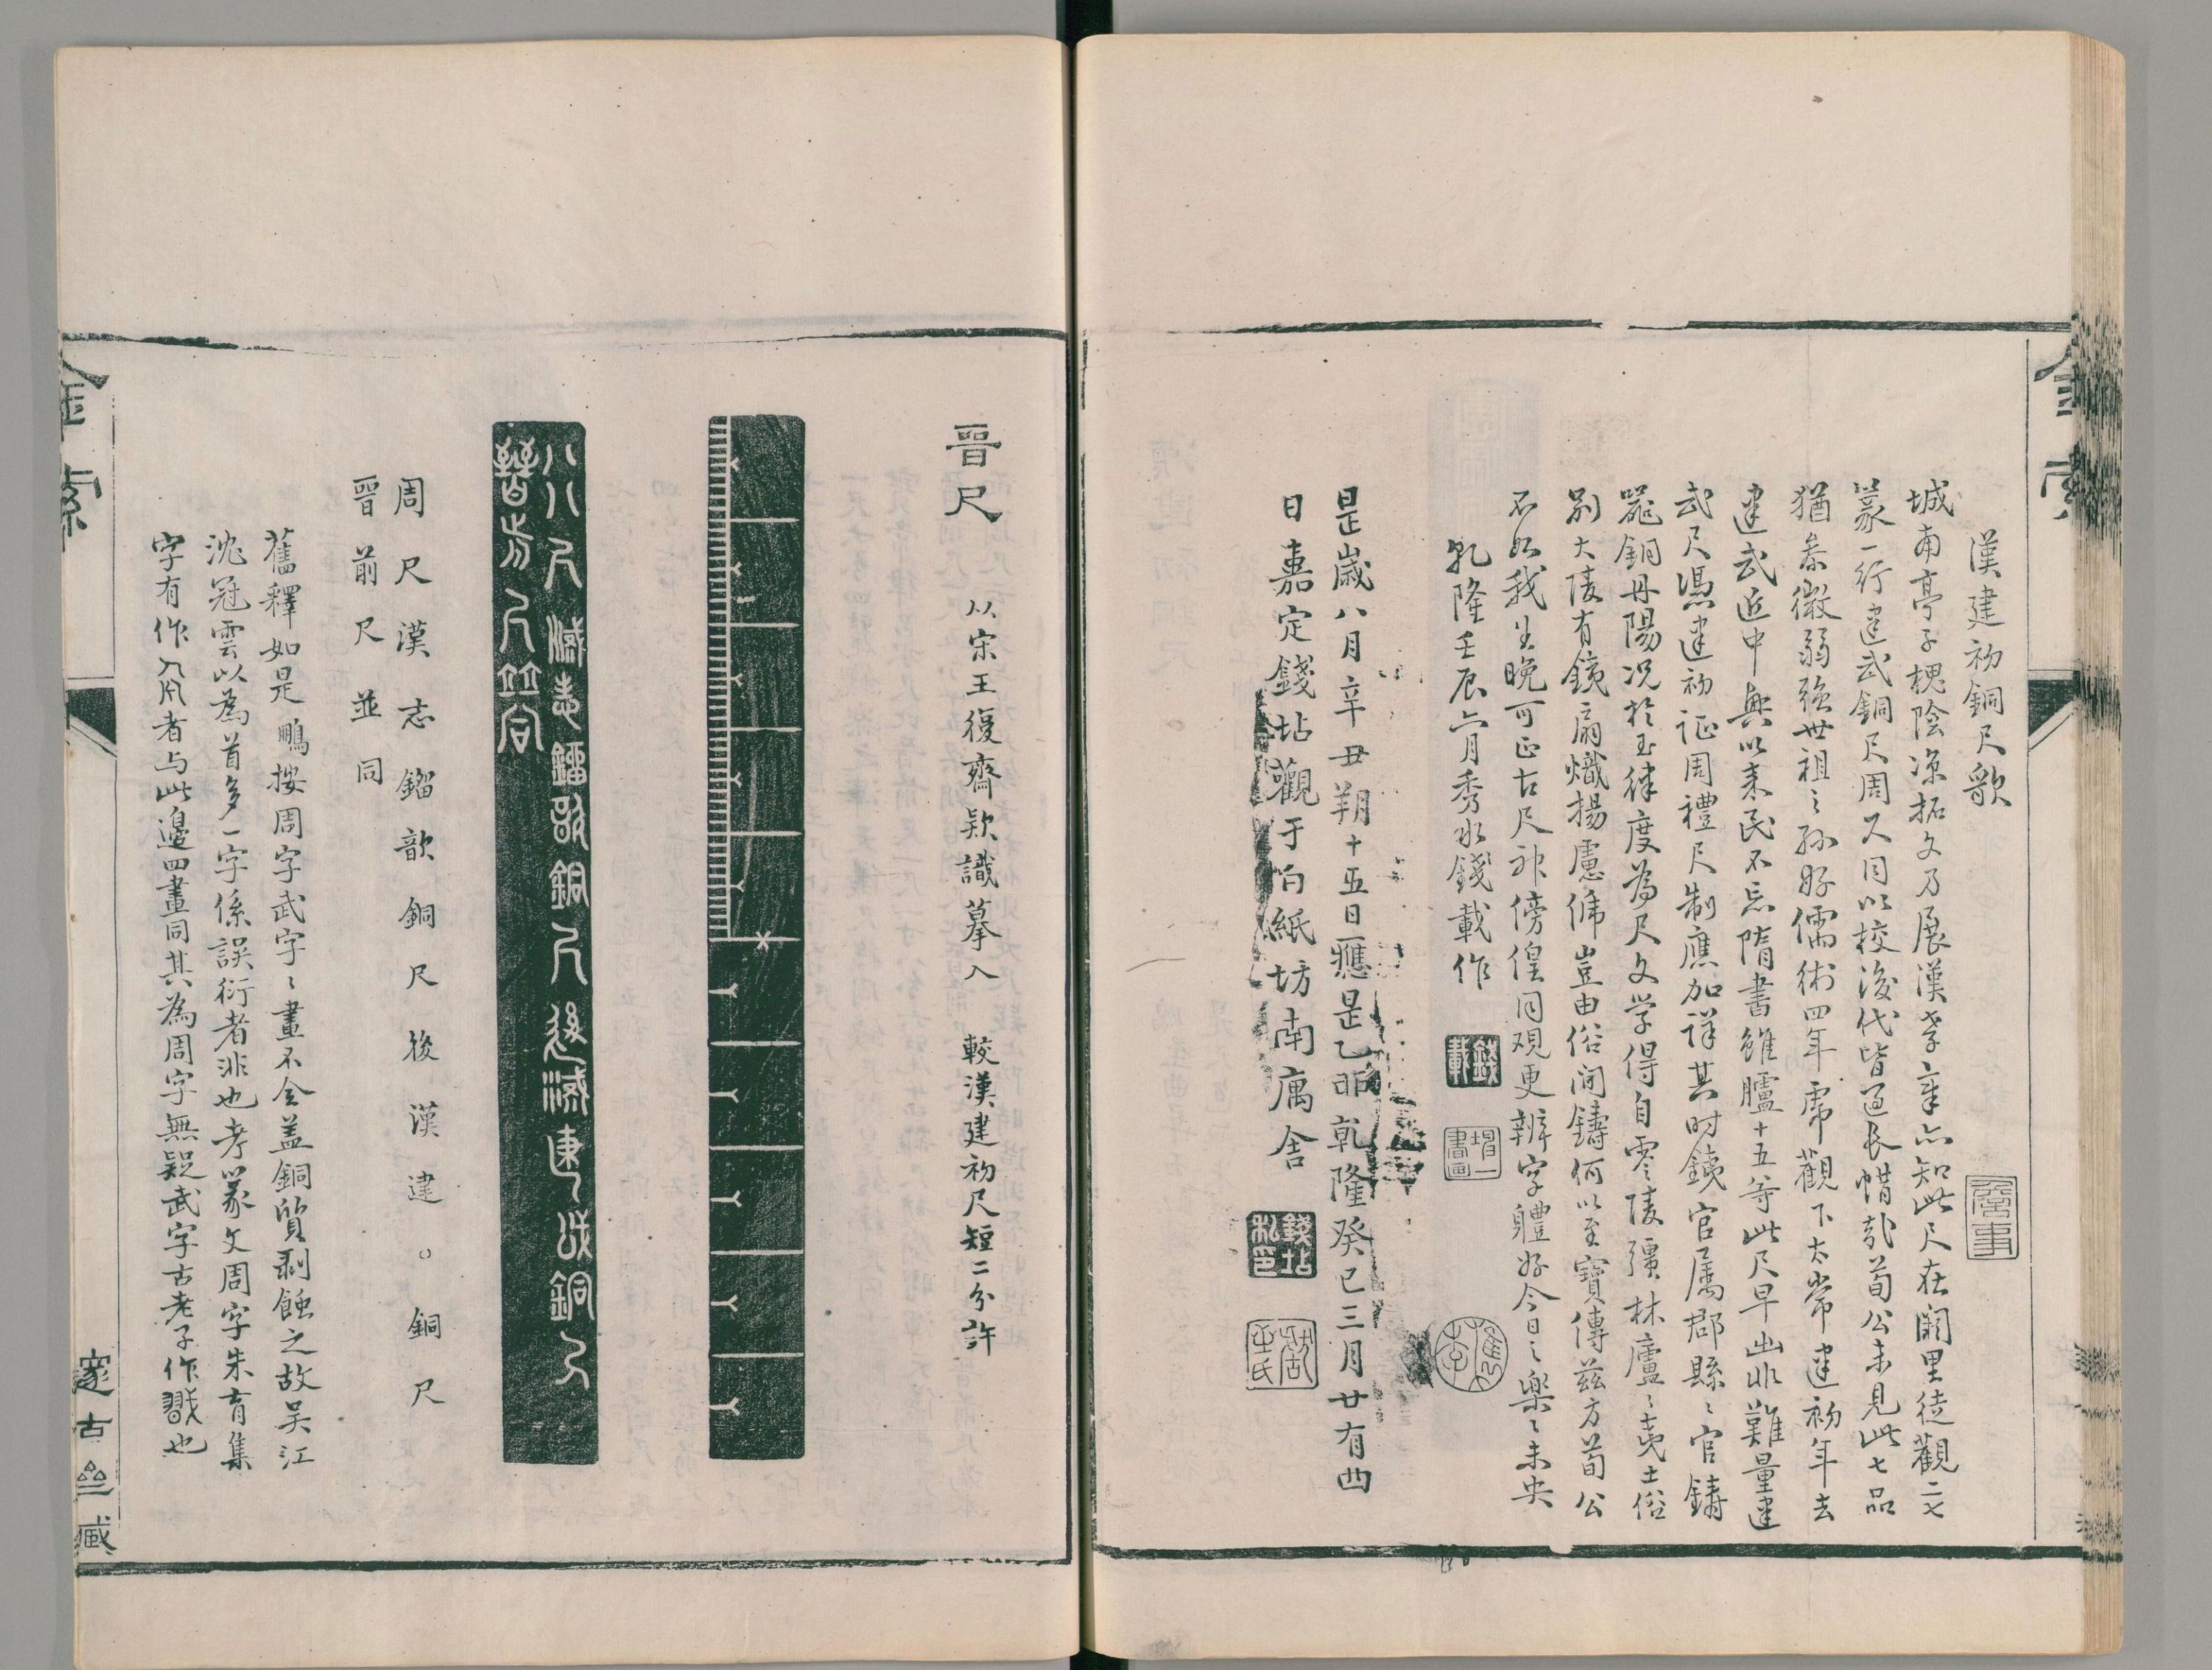 漢建初銅尺歌
城南亭子槐陰涼拓文乃展漢孝章亦知此尺在闕里徒觀二七
篆一行建武銅尺周尺同以校後代皆過長惜哉荀公未見此七品
猶參微弱強世祖之孫好儒術四年虎觀下太常建初年去
建武近中興以來民不忘隋書雖臚十五等此尺早出非難量建
武尺憑建初証周禮尺制應加詳其時銕官屬郡縣縣官鑄
器銅丹陽況於玉律度為尺文学得自零陵彊林廬之夷土俗
別大陵有銕扇熾揚慮俿豈由俗間鑄何以至寶傳茲方荀公
不如我生晚可正古尺神傍偟同觀更辨字軆好今日之樂樂未央
乾隆壬辰六月秀水錢載作
錢載
是歲八月辛丑朔十五日癋是乙卯乾隆癸巳三月廿有四
日嘉定錢坫觀于白紙坊南寓舍
錢坫私印
金索
晉尺
以宋王復齋欵識摹入 較漢建初尺短二分許
周尺漢志鎦歆銅尺後漢建○銅尺
晉前尺並同
舊釋如是鵬按周字武字〻畫不全盖銅質剥蝕之故吴江
沈冠雲以為首多一字係誤衍者非也考篆文周字朱育集
字有作者与此邊四畫同其為周字無疑武字古老子作也
金索
邃古齋藏